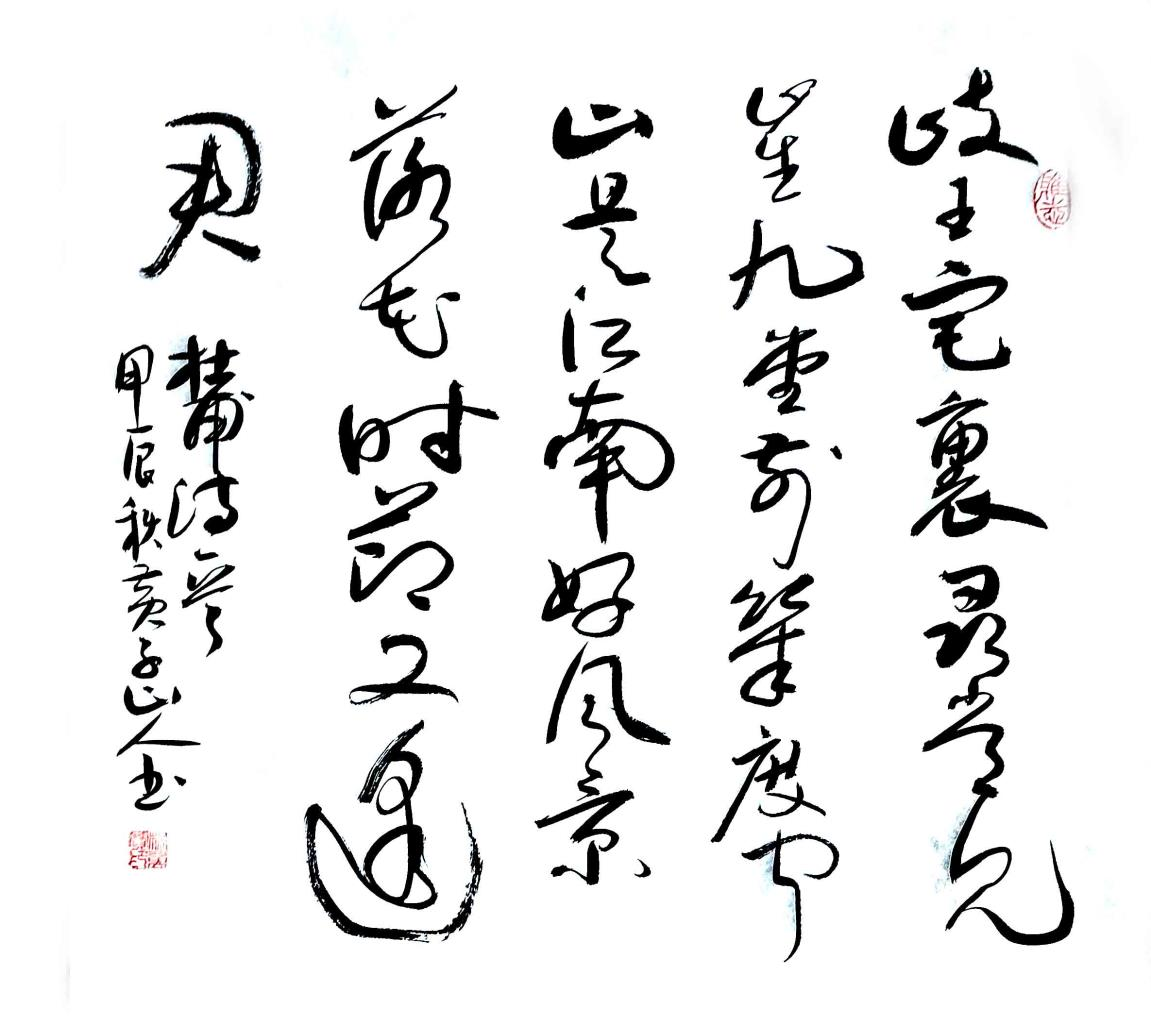 岐王宅裏尋常見
崔九堂前幾度聞
正是江南好風景
落花時節又逢
君
杜甫詩一首
甲辰秋黃子山人書